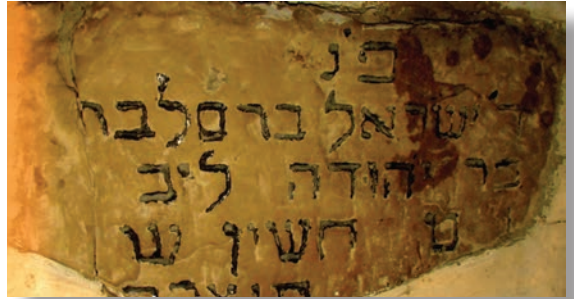 פ'נ
ר' ישראל ברסלבר
בר יהודה ליב
ט חשון